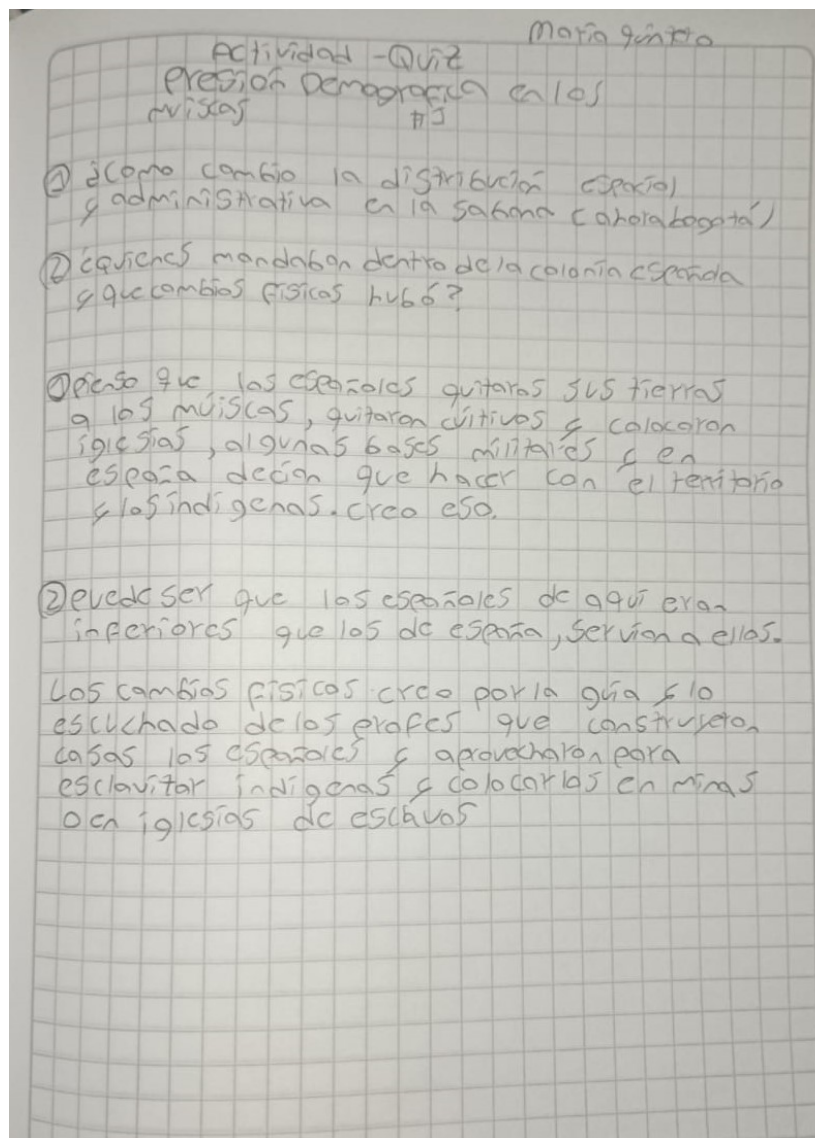 Maria quintero
Actividad - Quiz
Presion Demografica en los
muiscas #5
① ¿como cambio la distribución espacial
y administrativa en la sabana (ahora bogotá)
② ¿quienes mandaban dentro de la colonia española
y que cambios fisicos hubó?
① pienso que los españoles quitaros sus tierras
a los muiscas, quitaron cultivos y colocaron
iglesias, algunas bases militares y en
españa decian que hacer con el territorio
y los indigenas. creo eso.
② Puede ser que los españoles de aquí eran
inferiores que los de españa, servian a ellos.
Los cambios fisicos creo por la guia y lo
escuchado de los profes que construyeron
casas los españoles y aprovecharon para
esclavitar indigenas y colocarlos en minas
o en iglesias de esclavos